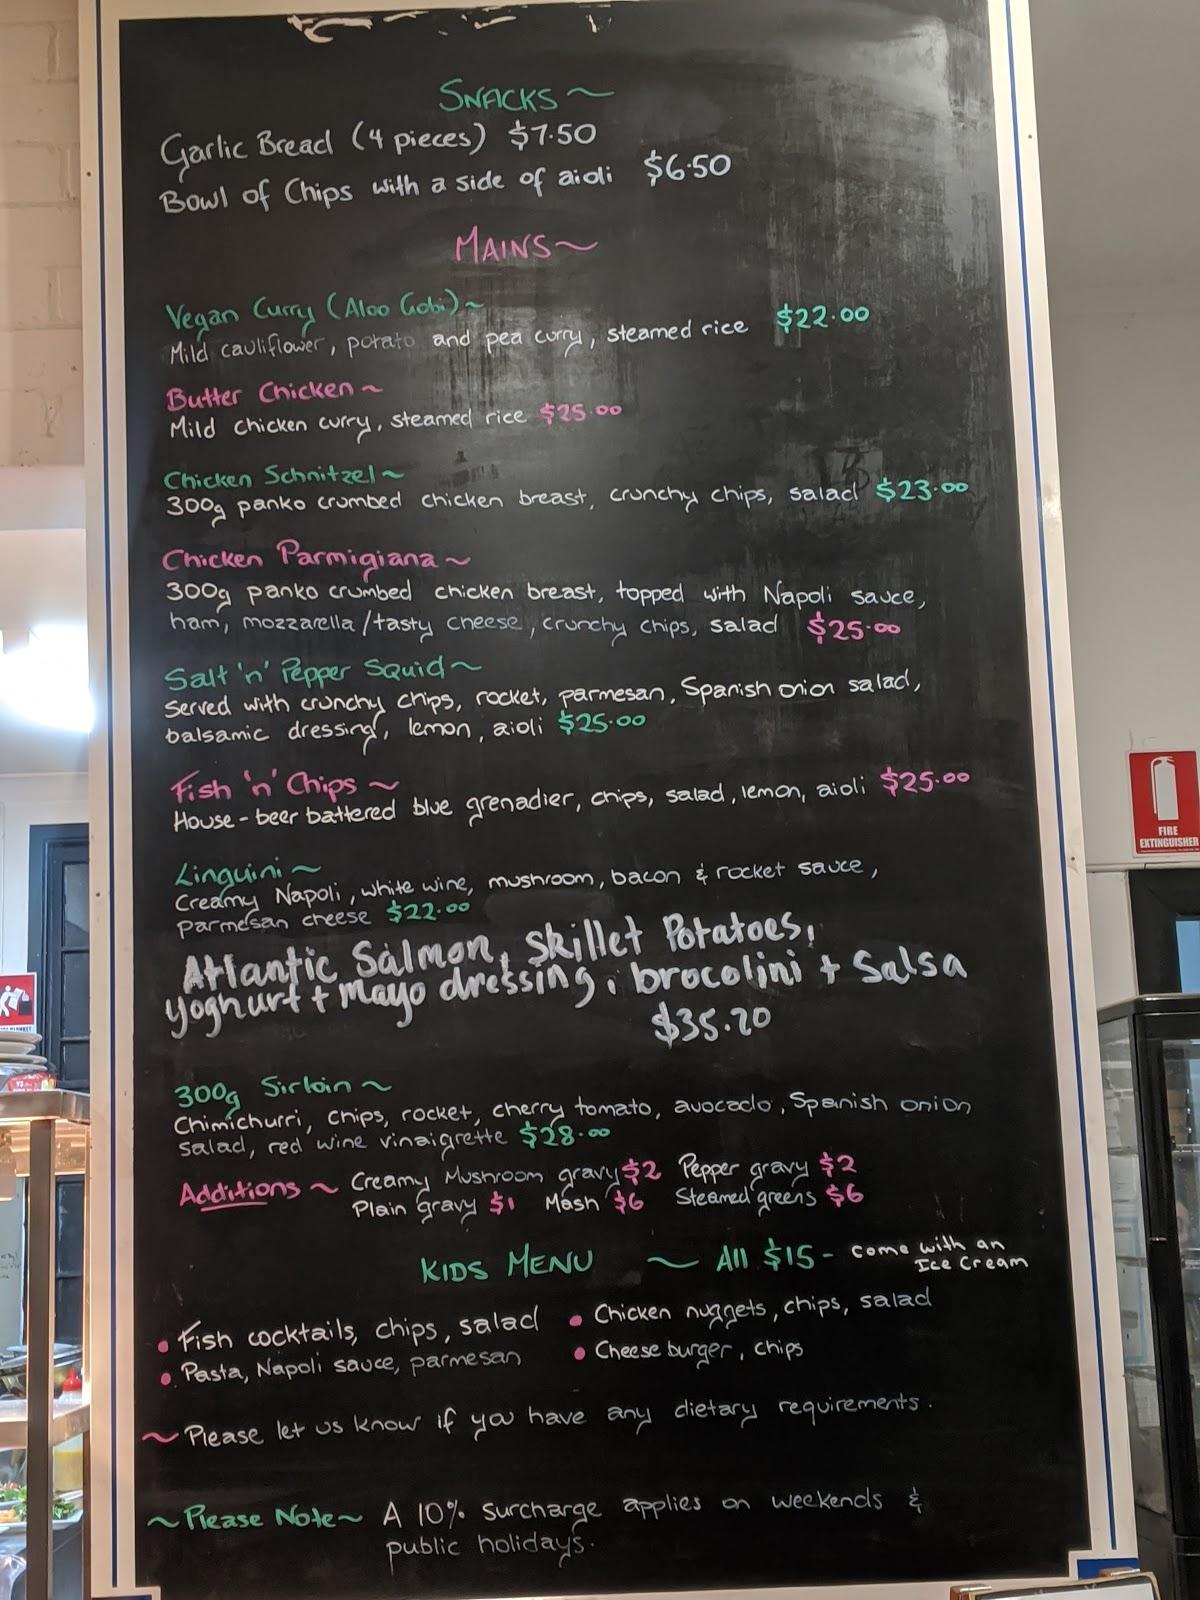 SNACKS ~
Garlic Bread (4 pieces) $7.50
Bowl of Chips with a side of aioli $6.50
MAINS ~
Vegan Curry (Aloo Gobi) ~
Mild cauliflower, potato and pea curry, steamed rice $22.00
Butter Chicken ~
Mild chicken curry, steamed rice $25.00
Chicken Schnitzel ~
300g panko crumbed chicken breast, crunchy chips, salad $23.00
Chicken Parmigiana ~
300g panko crumbed chicken breast, topped with Napoli sauce,
ham, mozzarella/tasty cheese, crunchy chips, salad $25.00
Salt 'n' Pepper Squid ~
Served with crunchy chips, rocket, parmesan, Spanish onion salad,
balsamic dressing, lemon, aioli $25.00
Fish 'n' Chips ~
House-beer battered blue grenadier, chips, salad, lemon, aioli $25.00
Linguini ~
Creamy Napoli, white wine, mushroom, bacon & rocket sauce,
parmesan cheese $22.00
Atlantic Salmon, skillet Potatoes,
yoghurt + mayo dressing, brocolini + Salsa
$35.20
300g Sirloin ~
Chimichurri, chips, rocket, cherry tomato, avocado, Spanish onion
salad, red wine vinaigrette $28.00
Additions ~ Creamy Mushroom gravy $2 Pepper gravy $2
Plain gravy $1 Mash $6 Steamed greens $6
KIDS MENU ~ All $15 - come with an
Ice Cream
• Fish cocktails, chips, salad • Chicken nuggets, chips, salad
• Pasta, Napoli sauce, parmesan • Cheese burger, chips
~ Please let us know if you have any dietary requirements.
~ Please Note ~ A 10% surcharge applies on weekends &
public holidays.
FIRE
EXTINGUISHER